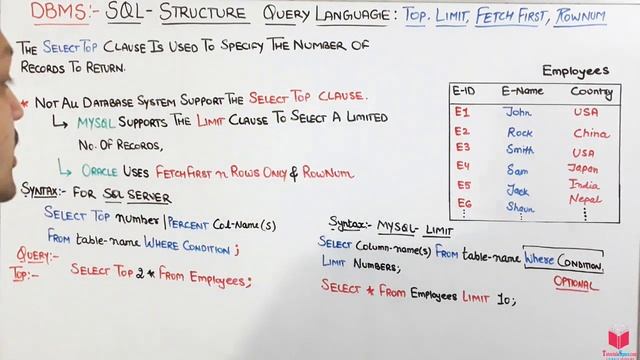 DBMS:- SQL- STRUCTURE QUERY LANGUAGE: TOP, LIMIT, FETCH FIRST, ROWNUM
THE SELECT TOP CLAUSE IS USED TO SPECIFY THE NUMBER OF
RECORDS TO RETURN.
* NOT ALL DATABASE SYSTEM SUPPORT THE SELECT TOP CLAUSE.
↳ MYSQL SUPPORTS THE LIMIT CLAUSE TO SELECT A LIMITED
NO. OF RECORDS,
↳ ORACLE USES FETCH FIRST n ROWS ONLY & ROWNUM
SYNTAX:- FOR SQL SERVER
SELECT TOP number | PERCENT Col-Name(s)
FROM table-name WHERE CONDITION ;
QUERY:-
TOP:- SELECT TOP 2 * FROM Employees;
Employees
E-ID E-Name Country
E1 John USA
E2 Rock China
E3 Smith USA
E4 Sam Japan
E5 Jack India
E6 Shaun Nepal
Syntax:- MYSQL- LIMIT
SELECT Column-name(s) FROM table-name Where CONDITION
LIMIT Numbers;
OPTIONAL
SELECT * FROM Employees LIMIT 10;